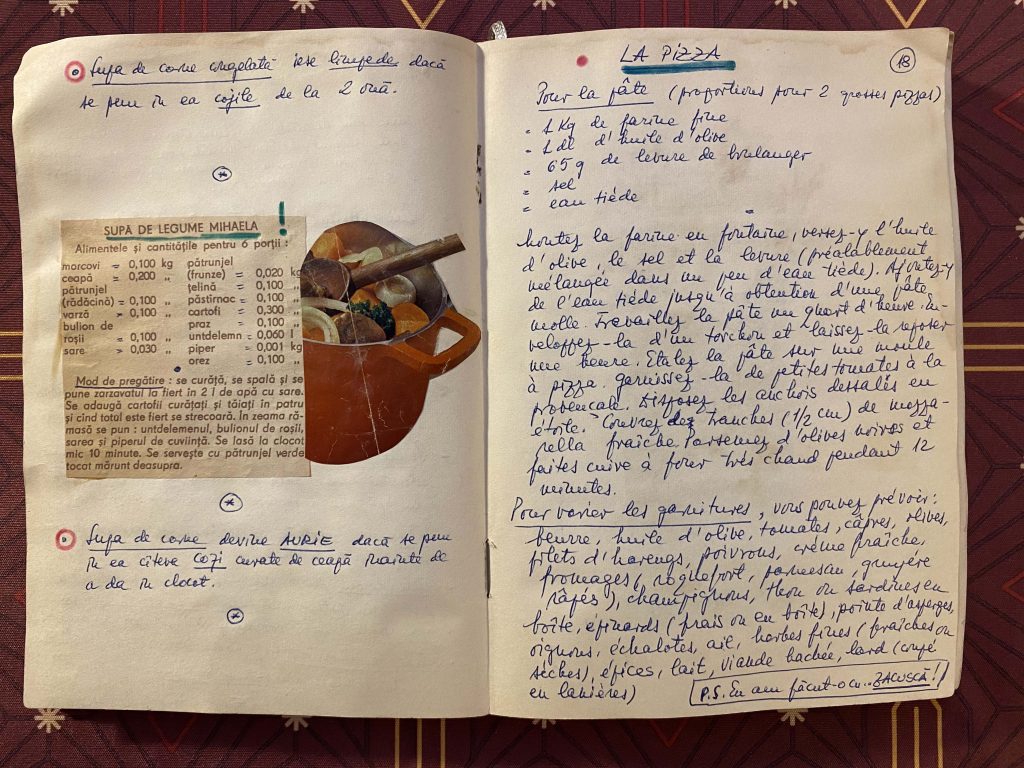 Supa de carne congelată iese limpede dacă
se pun în ea cojile de la 2 ouă.
SUPĂ DE LEGUME MIHAELA !
Alimentele și cantitățile pentru 6 porții :
morcovi = 0,100 kg
ceapă = 0,200 „
pătrunjel
(rădăcină) = 0,100 „
varză = 0,100 „
bulion de
roșii = 0,100 „
sare = 0,030 „
pătrunjel
(frunze) = 0,020 kg
țelină = 0,100 „
păstîrnac = 0,100 „
cartofi = 0,300 „
praz = 0,100 „
untdelemn = 0,060 l
piper = 0,001 kg
orez = 0,100 „
Mod de pregătire : se curăță, se spală și se
pune zarzavatul la fiert in 2 l de apă cu sare.
Se adaugă cartofii curățați și tăiați în patru
și cînd totul este fiert se strecoară. În zeama ră-
masă se pun : untdelemenul, bulionul de roșii,
sarea și piperul de cuviință. Se lasă la clocot
mic 10 minute. Se servește cu pătrunjel verde
tocat mărunt deasupra.
Supa de carne devine AURIE dacă se pun
în ea cîteva COJI curate de ceapă înainte de
a da în clocot.
LA PIZZA
18
Pour la pâte (proportions pour 2 grosses pizzas)
- 1 Kg de farine fine
- 1 dl d'huile d'olive
- 65 g de levure de boulanger
- sel
- eau tiède
Montez la farine en fontaine, versez-y l'huile
d'olive, le sel et la levure (préalablement
mélangée dans un peu d'eau tiède). Ajoutez-y
de l'eau tiède jusqu'à obtention d'une pâte
molle. Travaillez la pâte un quart d'heure. En-
veloppez-la d'un torchon et laissez-la reposer
une heure. Etalez la pâte sur une moule
à pizza. Garnissez-la de petites tomates à la
provençale. Disposez les anchois dessalés en
étoile. Couvrez des tranches (1/2 cm) de mozza-
rella fraîche. Parsemez d'olives noires et
faites cuire à four très chaud pendant 12
minutes.
Pour varier les garnitures, vous pouvez prévoir :
beurre, huile d'olive, tomates, câpres, olives,
filets d'harengs, poivrons, crème fraîche,
fromages (roquefort, parmesan, gruyère
râpés), champignons, thon ou sardines en
boîte, épinards (frais ou en boîte), pointe d'asperges,
oignons, échalotes, ail, herbes fines (fraîches ou
sèches), épices, lait, viande hachée, lard (coupé
en lanières)
P.S. Eu am făcut-o cu.. ZACUSCĂ !